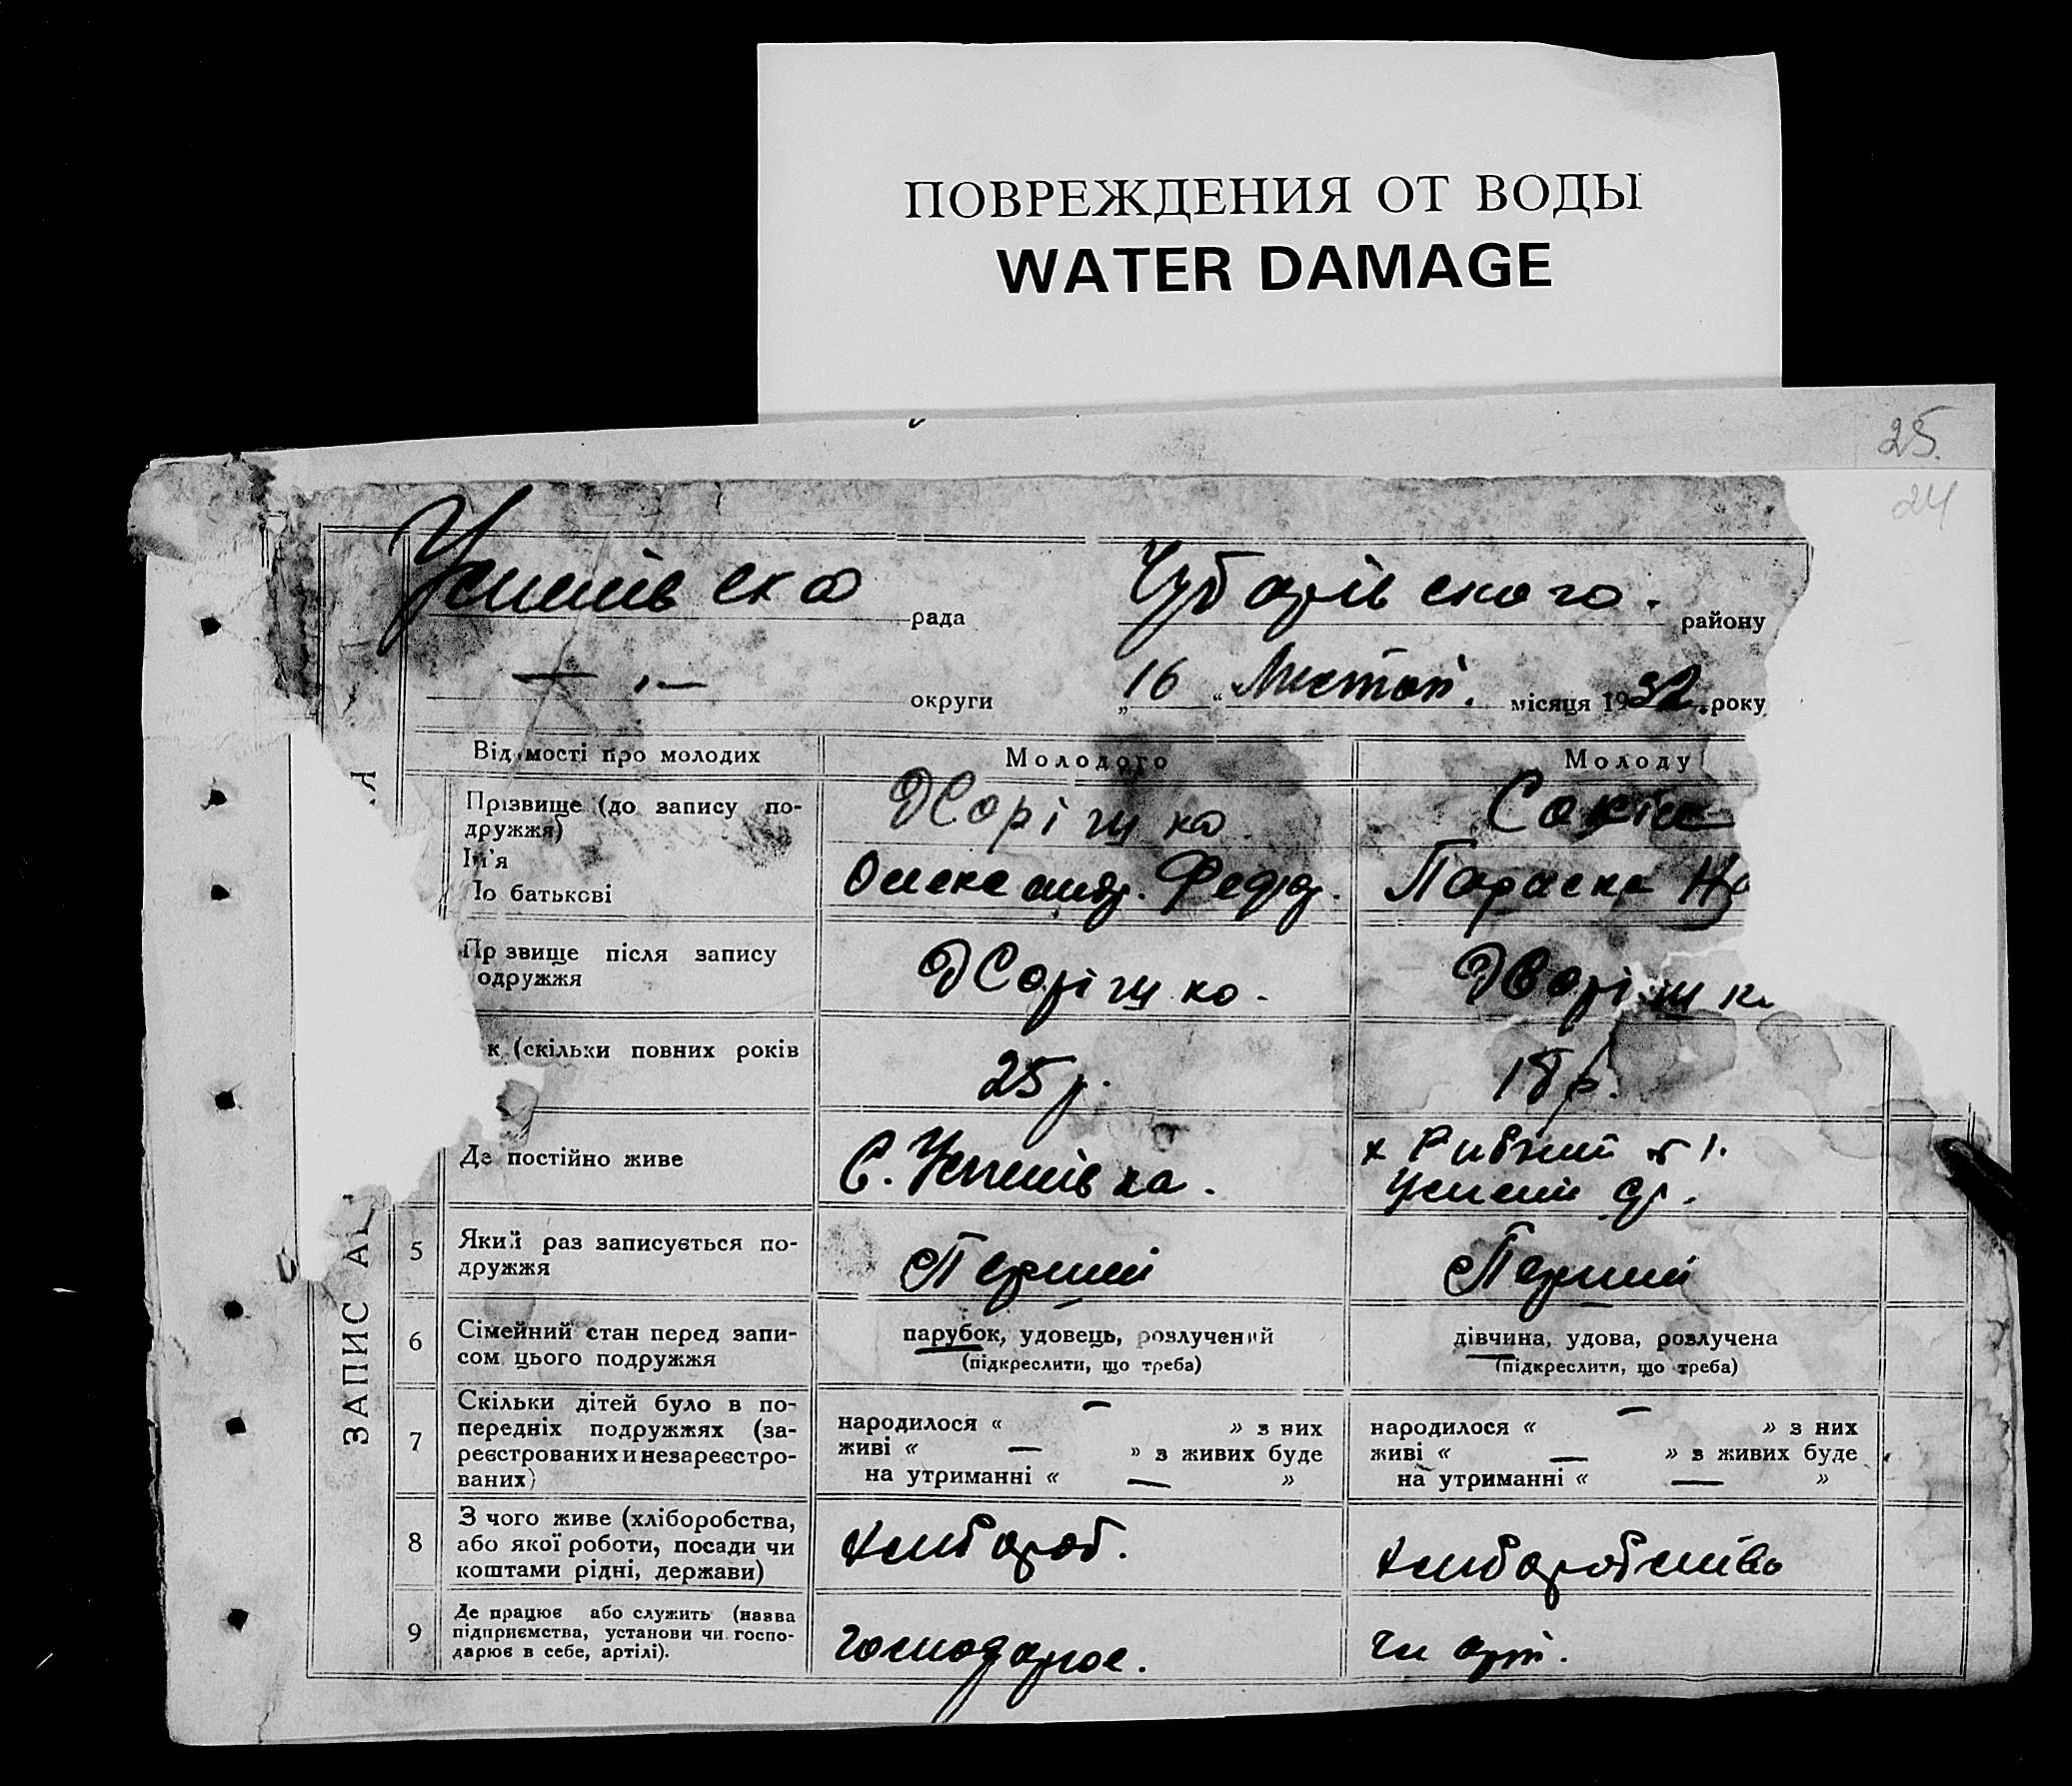 ПОВРЕЖДЕНИЯ ОТ ВОДЫ
WATER DAMAGE
25.
24
Успенівска рада Чубарівського. району
округи „16“ Листоп. місяця 1932 року
Відомості про молодих Молодого Молоду
Прізвище (до запису по-
дружжя)
Ім'я
По батькові
Олександр. Федор. Параска
Пр звище після запису
одружжя
к (скільки повних років
25 р. 18 р.
Де постійно живе
С. Успенівка.
5 Який раз записується по-
дружжя
Перший Перший
6 Сімейний стан перед запи-
сом цього подружжя
парубок, удовець, розлучений дівчина, удова, розлучена
(підкреслити, що треба) (підкреслити, що треба)
7 Скільки дітей було в по-
передніх подружжях (за-
реєстрованих и незареєстро-
ваних)
народилося « — » з них народилося « — » з них
живі « — » з живих буде живі « — » з живих буде
на утриманні « — » на утриманні « — »
8 З чого живе (хліборобства,
або якої роботи, посади чи
коштами рідні, держави)
хлібороб.
9 Де працює або служить (назва
підприємства, установи чи госпо-
дарює в себе, артілі).
господарює. чл арт.
ЗАПИС А